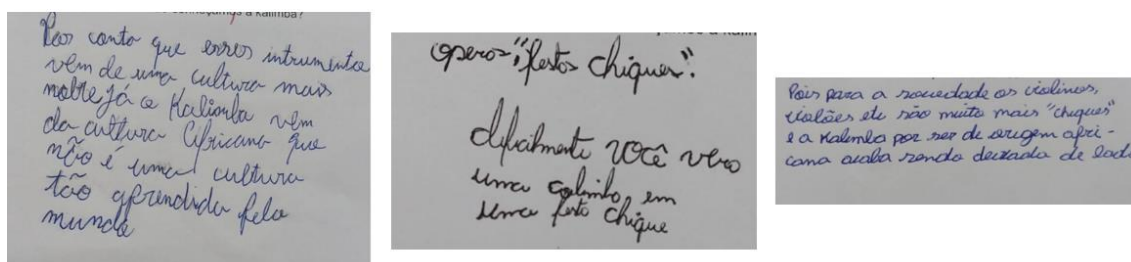 conheçamos a kalimba?
Por conta que esses intrumentos
vem de uma cultura mais
nobre já a Kalimba vem
da cultura Africana que
não é uma cultura
tão aprendida pelo
mundo
operas, "festas chiques".
dificilmente você verá
uma calimba em
uma festa chique
Pois para a sociedade os violinos,
violões etc são muito mais "chiques"
e a Kalimba por ser de origem afri-
cana acaba sendo deixada de lado